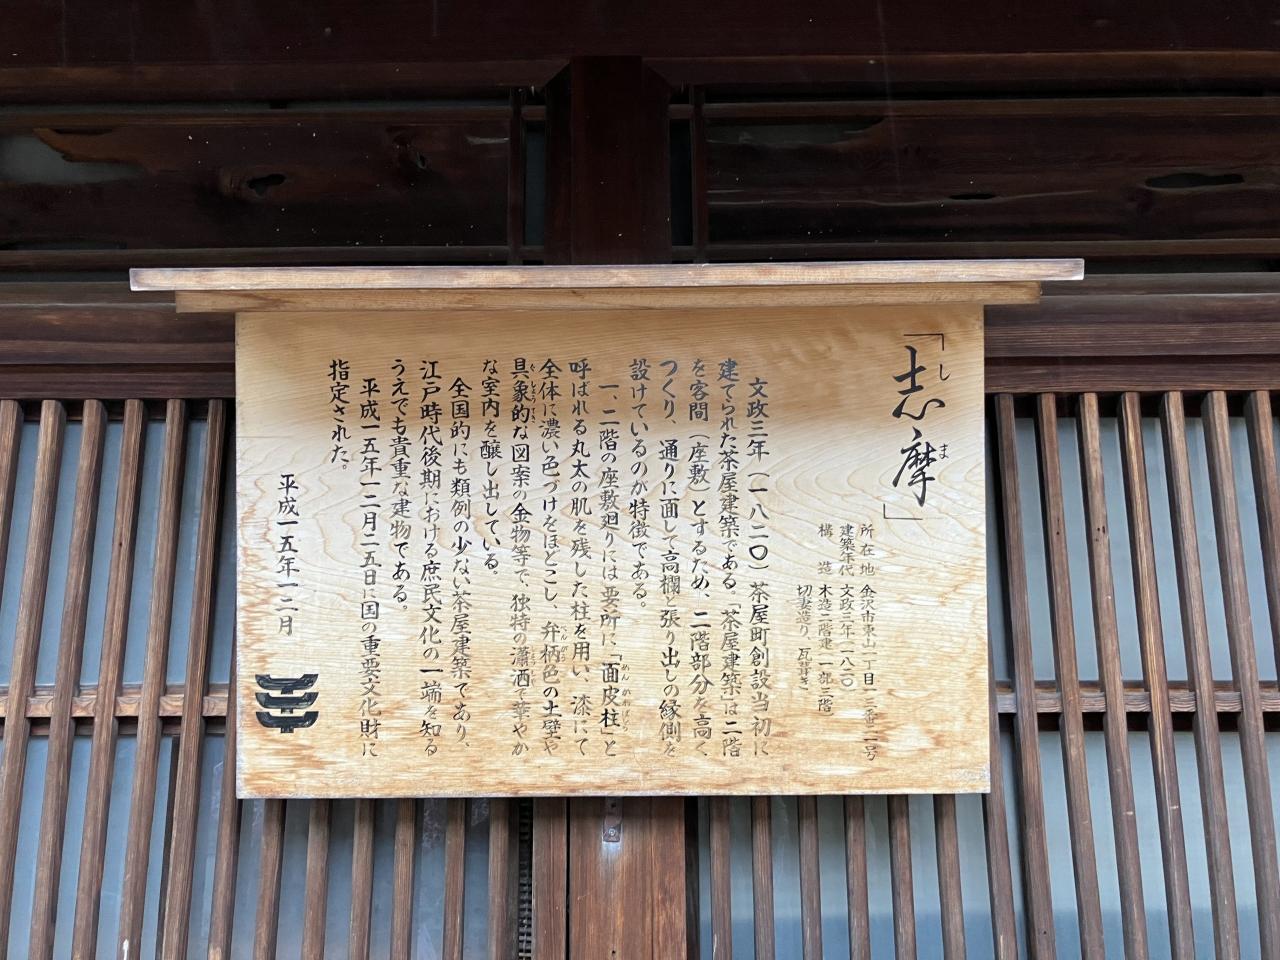 「志摩」
しま
所在地 金沢市東山一丁目一三番二一号
建築年代 文政三年（一八二〇）
構造 木造二階建 一部三階
切妻造り、瓦葺き
文政三年（一八二〇）茶屋町創設当初に
建てられた茶屋建築である。「茶屋建築」は二階
を客間（座敷）とするため、二階部分を高く、
つくり、通りに面して高欄と張り出しの縁側を
設けているのが特徴である。
一、二階の座敷廻りには要所に「面皮柱」と
呼ばれる丸太の肌を残した柱を用い、漆にて
全体に濃い色づけをほどこし、弁柄色の土壁や
具象的な図案の金物等で、独特の瀟洒で華やか
な室内を醸し出している。
全国的にも類例の少ない茶屋建築であり、
江戸時代後期における庶民文化の一端を知る
うえでも貴重な建物である。
平成一五年一二月二五日に国の重要文化財に
指定された。
平成一五年一二月